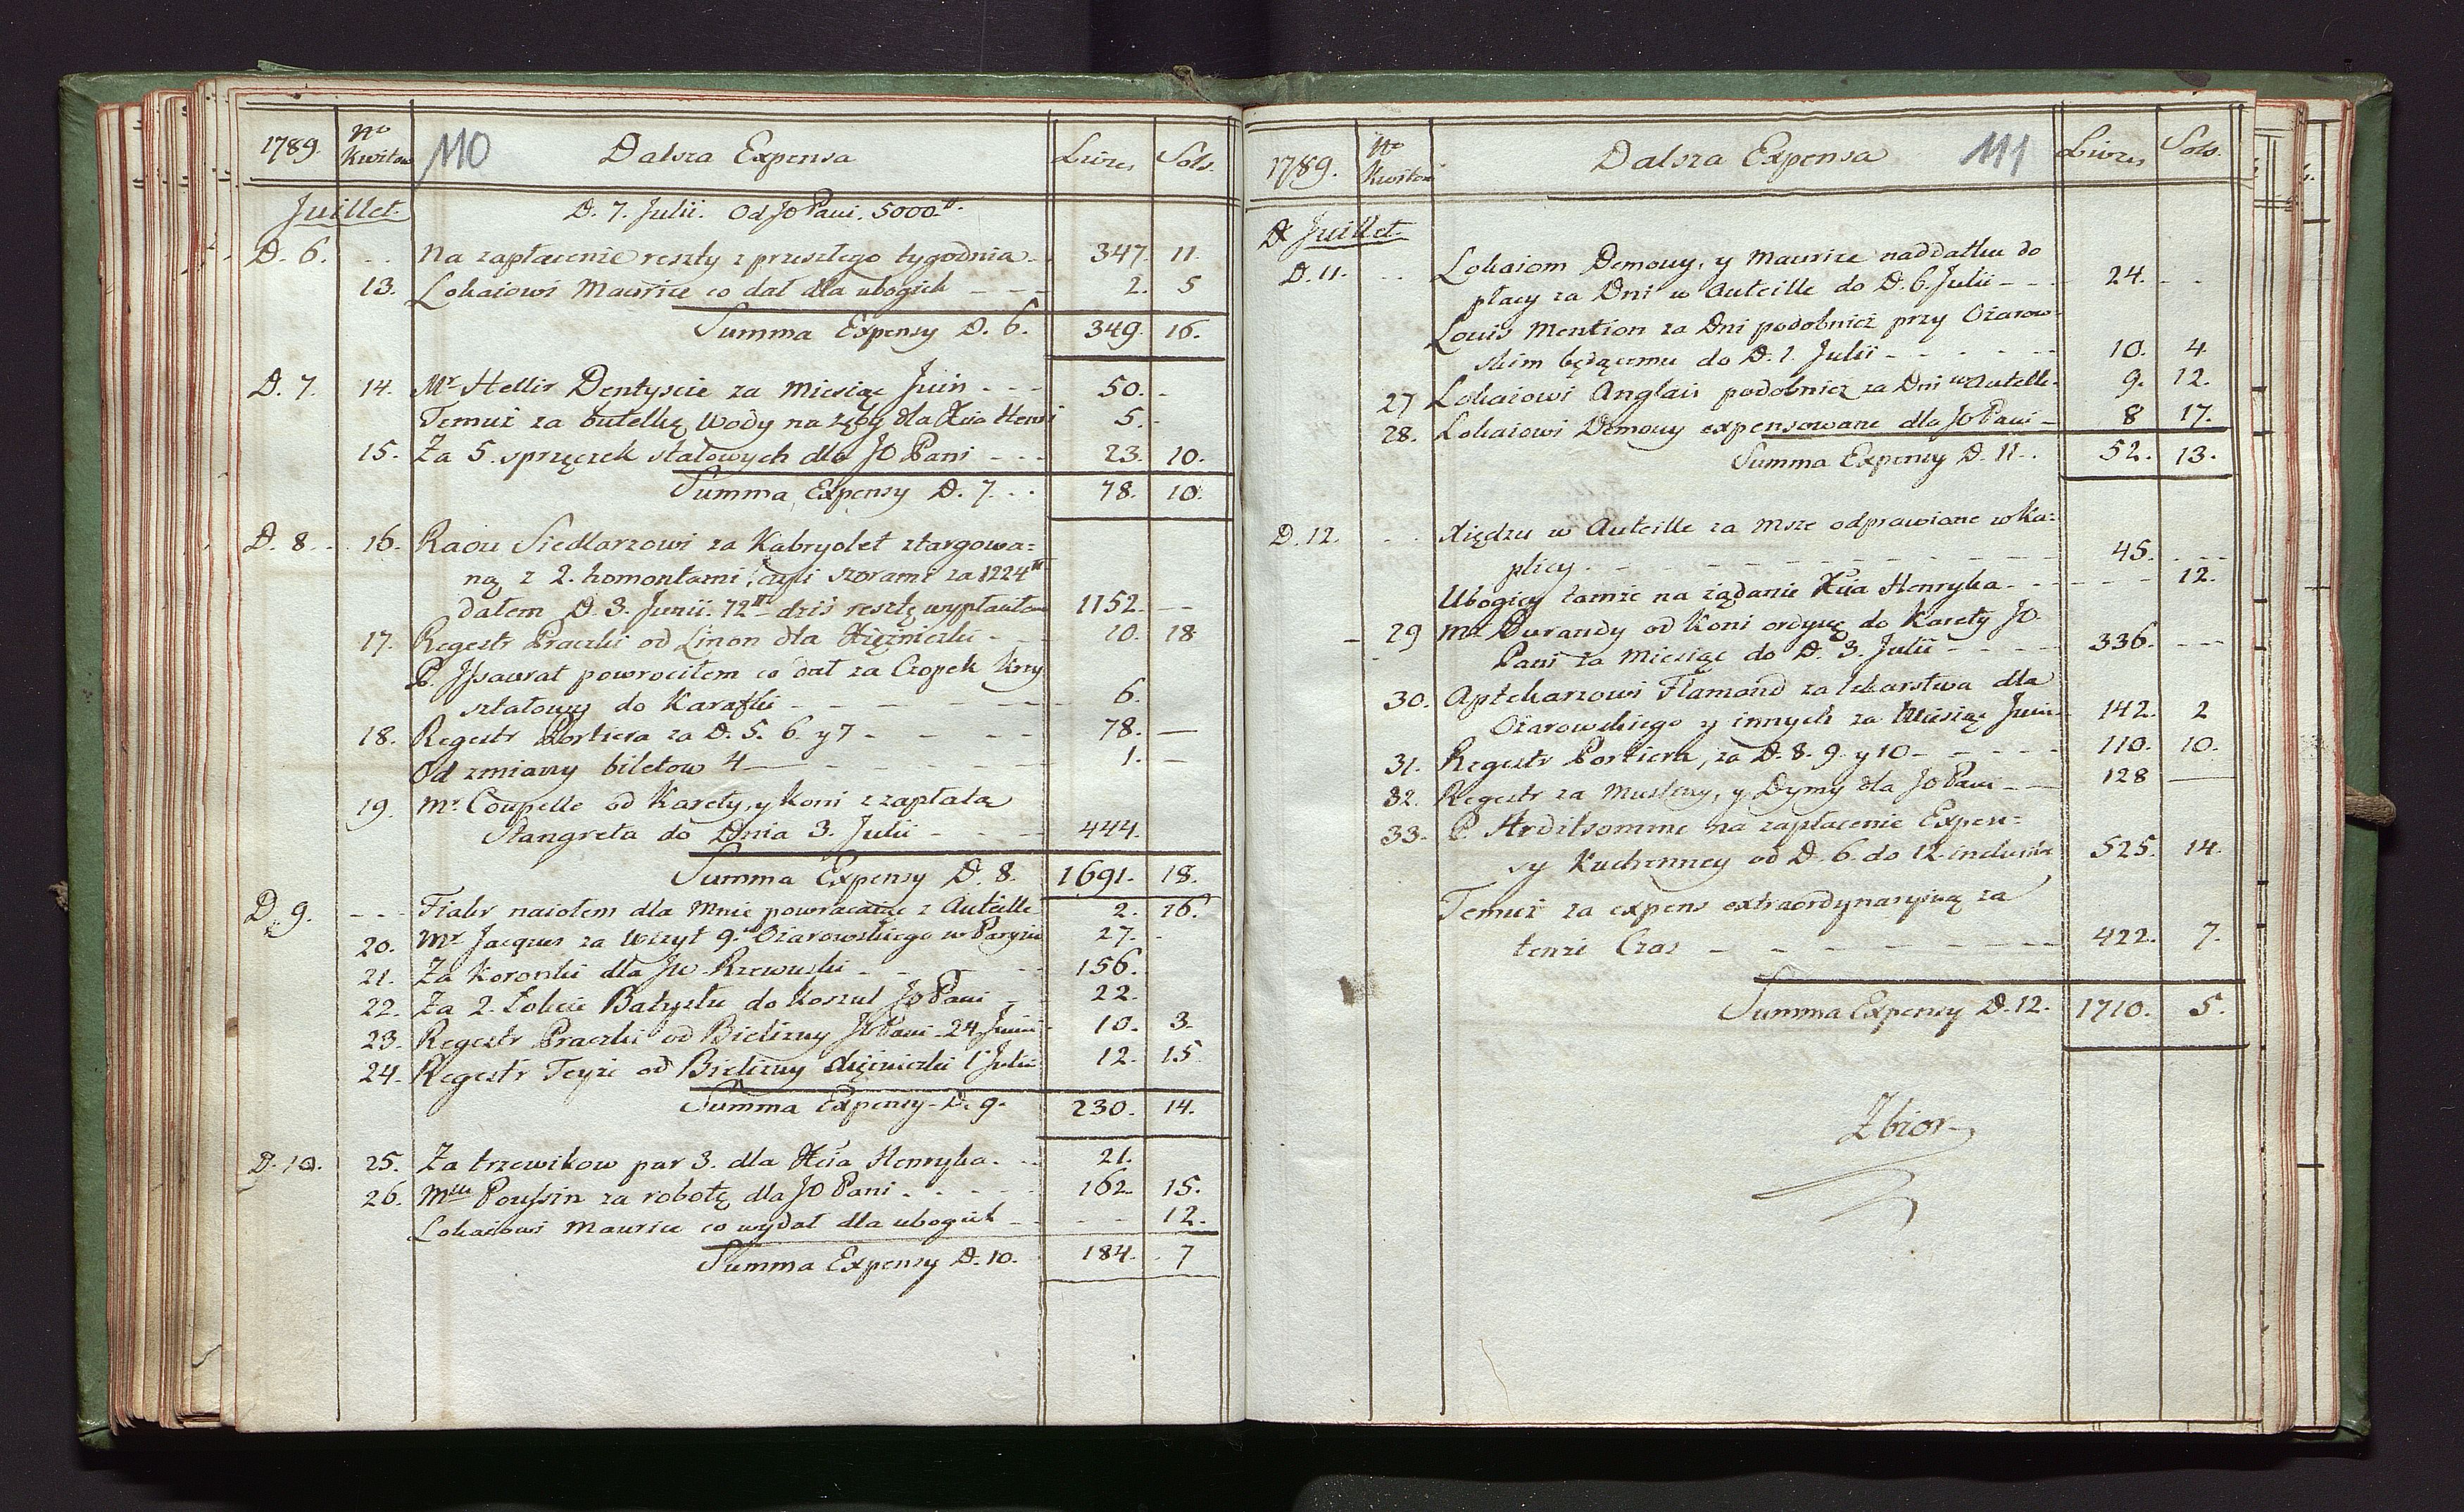 1789. No Kwitow 110 Dalsza Expensa Livres Sols.
Juillet. D. 7. Julii. Od JO Pani. 5000.tt
D. 6. - - Na zapłacenie reszty z przeszłego tygodnia 347. 11.
13. Lokaiowi Maurice co dał dla ubogich - - - 2. 5
Summa Expensy D. 6. 349. 16.
D. 7. 14. Mr Hellir Dentyscie za Miesiąc Juin - - - 50. -
Temuż za butelkę Wody na zęby dla Xcia Henri 5. -
15. Za 5. sprzączek stalowych dla JO Pani - - - 23. 10.
Summa Expensy D. 7. . . 78. 10.
D. 8. - 16. Raou Siedlarzowi za Kabryolet ztargowa=
ną z 2. homontami, czyli szorami za 1224tt
dałem D. 3. Junii. 72tt dziś resztę wypłaciłem 1152. - -
17. Regestr Praczki od Linon dla Xiężniczki - - 10. 18
P. Jssaurat powrociłem co dał za Czopek krzy
ształowy do Karafki - - - - - - 6.
18. Regestr Portiera za D. 5. 6. y 7 - - - - 78. —
Od zmiany biletow 4 - - - - - 1. —
19. Mr. Coupelle od Karety, y Koni z zapłatą
Stangreta do Dnia 3. Julii - - - 444.
Summa Expensy D. 8. 1691. 18.
D. 9. - - - Fiakr naiołem dla Mnie powracaiąc z Auteille 2. 16.
20. Mr Jacques za Wizyt 9. Ożarowskiego w Paryżu 27. -
21. Za Koronki dla JW Rzewuski - - - 156.
22. Za 2. Łokcie Batystu do Koszul JO Pani - 22.
23. Regestr Praczki od Bielizny JO Pani - 24 Junii 10. 3.
24. Regestr Teyże od Bielizny Xiężniczki 1 Julii 12. 15
Summa Expensy - D. 9. 230. 14.
D. 10. 25. Za trzewikow par 3. dla Xcia Henryka. - - 21.
26. Mlle Poussin za robotę dla JO Pani - - - - 162. 15.
Lokaiowi Maurice co wydał dla ubogich - - - - 12.
Summa Expensy D. 10. 184. 7
1789. No Kwitow Dalsza Expensa 111 Livres Sols.
D. Juillet.
D. 11. - - Lokaiom Demouy, y Maurice naddatku do
płacy za Dni w Auteille do D. 6. Julii - - - 24. - -
Louis Mention za Dni podobnież przy Ożarow-
skim będącemu do D. 1. Julii - - - - - 10. 4.
27 Lokaiowi Anglais podobnież za Dni w Autelle. 9. 12.
28. Lokaiowi Demouy expensowane dla JO Pani - 8 17.
Summa Expensy D. 11. . 52. 13.
D. 12. - - Xiędzu w Auteille za Msze odprawione w Ka=
plicy. - - - - - - - - 45. - -
Ubogiey tamże na żądanie Xcia Henryka - - - - - 12.
- 29 Mr Durandy od Koni ordynę do Karety JO
Pani za Miesiąc do D. 3. Julii - - - - 336. - -
30. Aptekarzowi Flamand za lekarstwa dla
Ożarowskiego y innych za Miesiąc Juin 142. 2
31. Regestr Portiera, za D. 8. 9. y 10 - - - - - 110. 10.
32. Regestr za Musliny, y Dymy dla JO Pani - - 128 —
33. P. Hrditsomme na zapłacenie Expen=
sy Kuchenney od D. 6. do 12. inclusive 525. 14.
Temuż za expens extraordynaryiną za
tenże Czas - - - - - - - - 422. 7.
Summa Expensy D. 12. 1710. 5.
Zbior